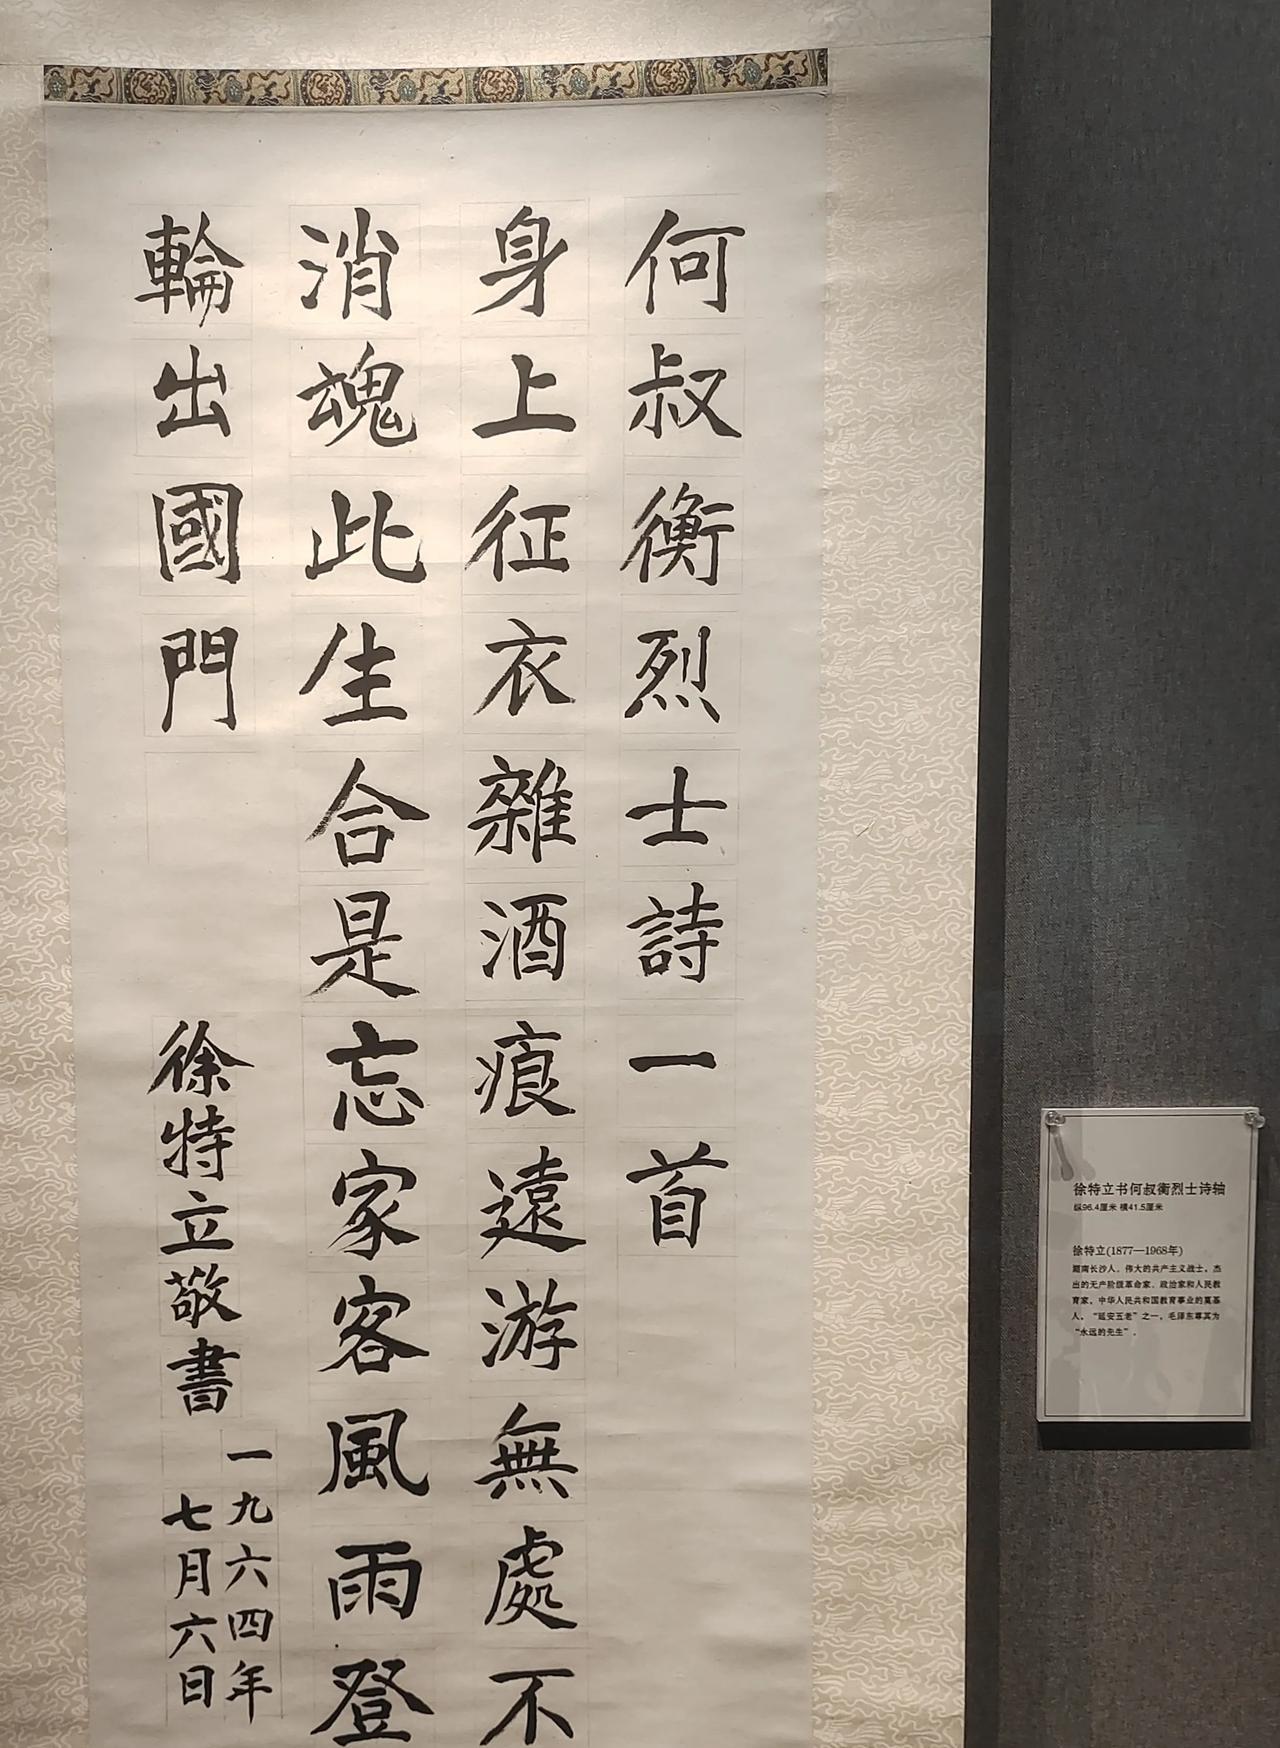 何叔衡烈士詩一首
身上征衣雜酒痕遠游無處不
消魂此生合是忘家客風雨登
輪出國門
徐特立敬書
一九六四年
七月六日
徐特立书何叔衡烈士诗轴
纵96.4厘米 横41.5厘米
徐特立(1877—1968年)
湖南长沙人。伟大的共产主义战士，杰
出的无产阶级革命家、政治家和人民教
育家，中华人民共和国教育事业的奠基
人，“延安五老”之一，毛泽东尊其为
“永远的先生”。